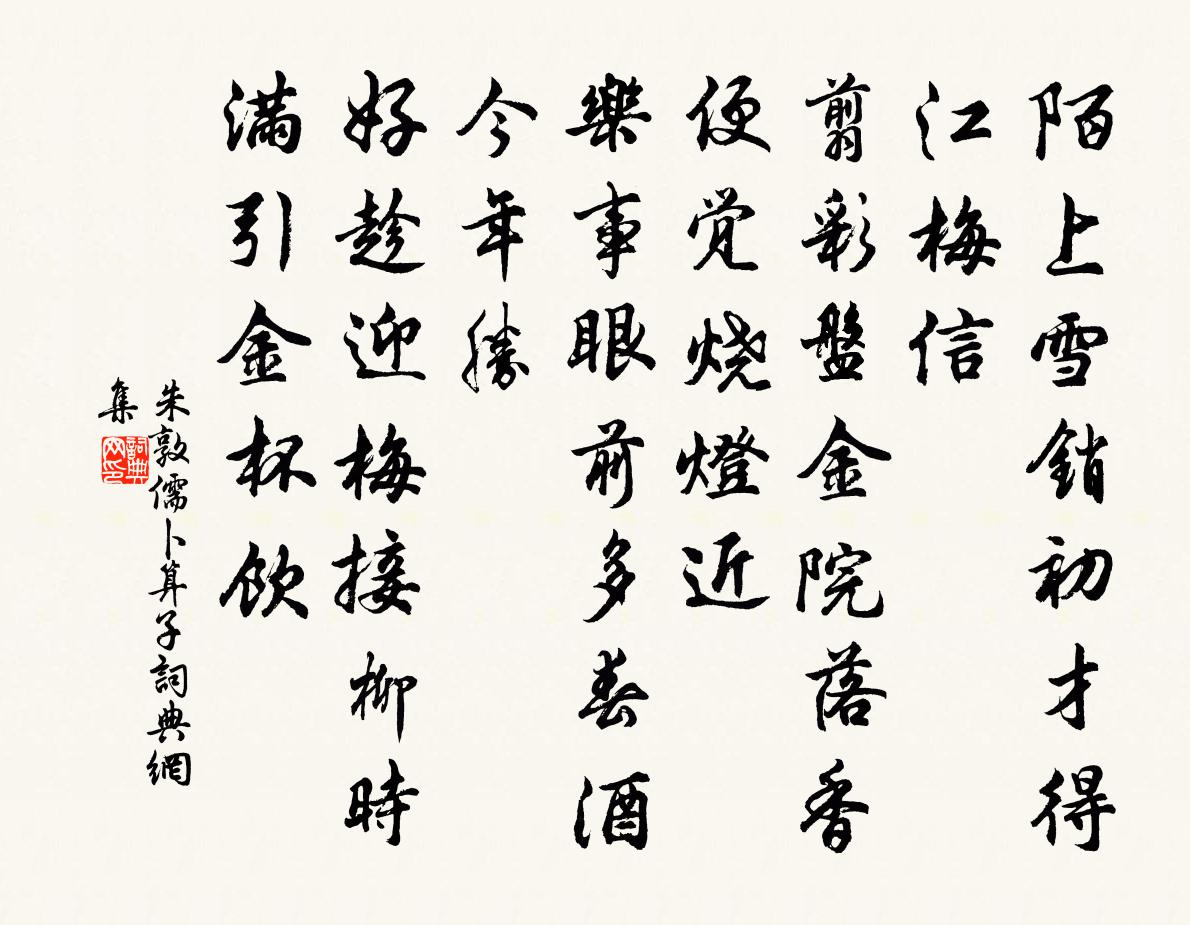 陌上雪銷初才得
江梅信
翦彩盤金院落香
便觉烧燈近
樂事眼前多春酒
今年勝
好趁迎梅接柳時
满引金杯飲
朱敦儒卜算子詞典網
集
詞典
网印